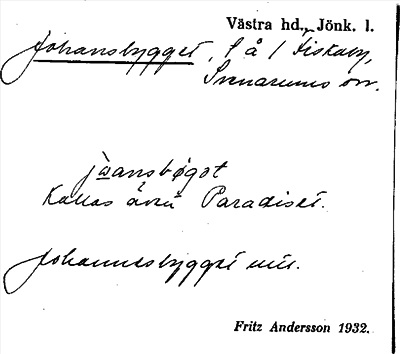 Västra hd., Jönk. l.
Johansbygget, l å / Fiskaby,
Svenarums sn.
jo̱ansbøgot
Kallas även Paradiset.
Johannesbygget
Fritz Andersson 1932.